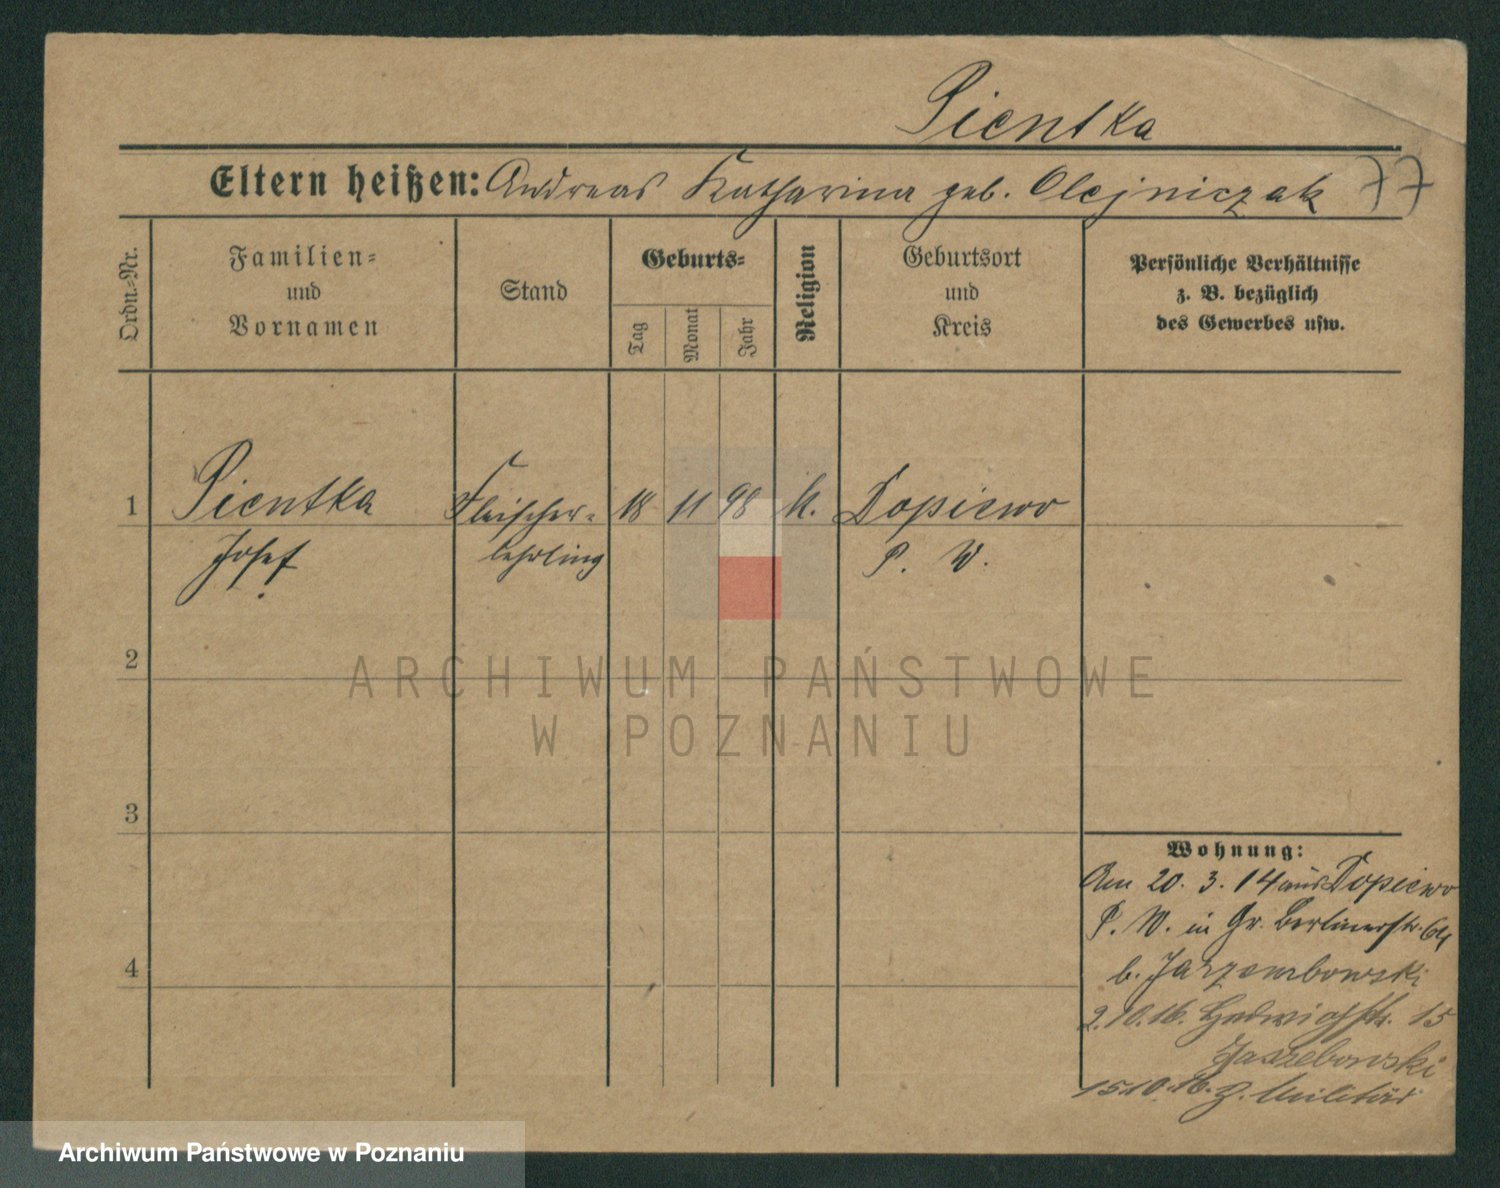 Pientka
Eltern heißen: Andreas Katharina geb. Olejniczak 77
Ordn.-Nr.
Familien-
und
Vornamen
Stand
Geburts-
Tag
Monat
Jahr
Religion
Geburtsort
und
Kreis
Persönliche Verhältnisse
z. B. bezüglich
des Gewerbes usw.
1 Pientka Fleischer- 18 11 98 k. Dopiewo
Josef lehrling P. W.
2
ARCHIWUM PAŃSTWOWE
W POZNANIU
3
Wohnung:
Am 20. 3. 14 aus Dopiewo
P. W. in Gr. Berlinerstr. 64
b. Jarzembowski
4
2.10.16. Hedwigstr. 15
Jarzebowski
15.10.16. z. Militär
Archiwum Państwowe w Poznaniu